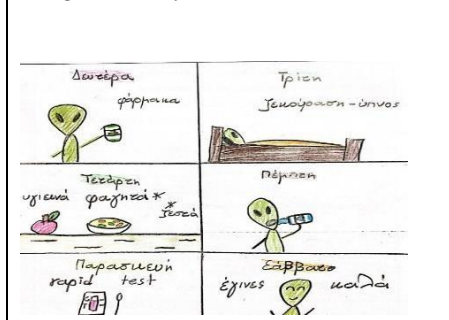 Δευτέρα
φάρμακα
Τρίτη
ξεκούραση - ύπνος
Τετάρτη
υγιεινά φαγητά *
* ζεστά
Πέμπτη
Παρασκευή
rapid test
Σάββατο
έγινες καλά